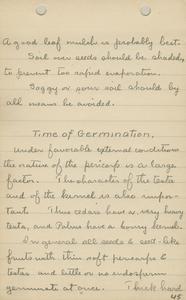 A good leaf mulch is probably best.
Soil over seeds should be shaded,
to prevent too rapid evaporation.
Soggy or sour soil should by
all means be avoided.
Time of Germination.
Under favorable external conditions
the nature of the pericarp is a large
factor. The character of the testa
and of the kernel is also impor-
tant. Thus cedars have a very heavy
testa, and Palms have a bony kernel.
In general all seeds & seed-like
fruits with thin soft pericarps &
testas and little or no endosperm
germinate at once. Thick hard
45